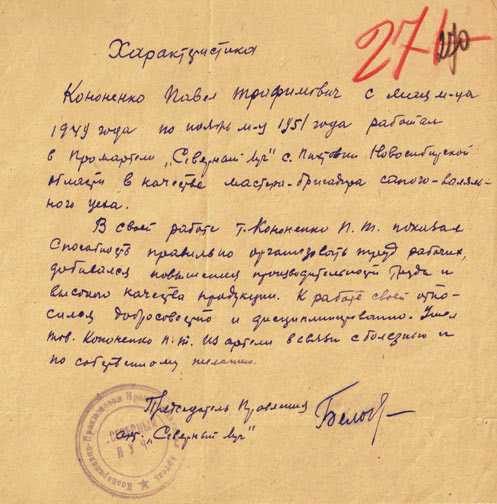 Характеристика
27/-
270
Кононенко Павел Трофимович с м-ца
1949 года по ноябрь м-ц 1951 года работал
в Промартели „Северный луч" с. Новосибирской
области в качестве мастера-бригадира сапого-валяль-
ного цеха.
В своей работе т. Кононенко П. Т. показал
способность правильно организовать труд рабочих,
добивался повышения производительности труда и
высокого качества продукции. К работе своей отно-
сился добросовестно и дисциплинированно. Ушел
тов. Кононенко П. Т. из артели в связи с болезнью и
по собственному желанию.
Председатель Правления
арт. „Северный луч"
Кооперативно-Промысловая Артель
СЕВЕРНЫЙ
ЛУЧ